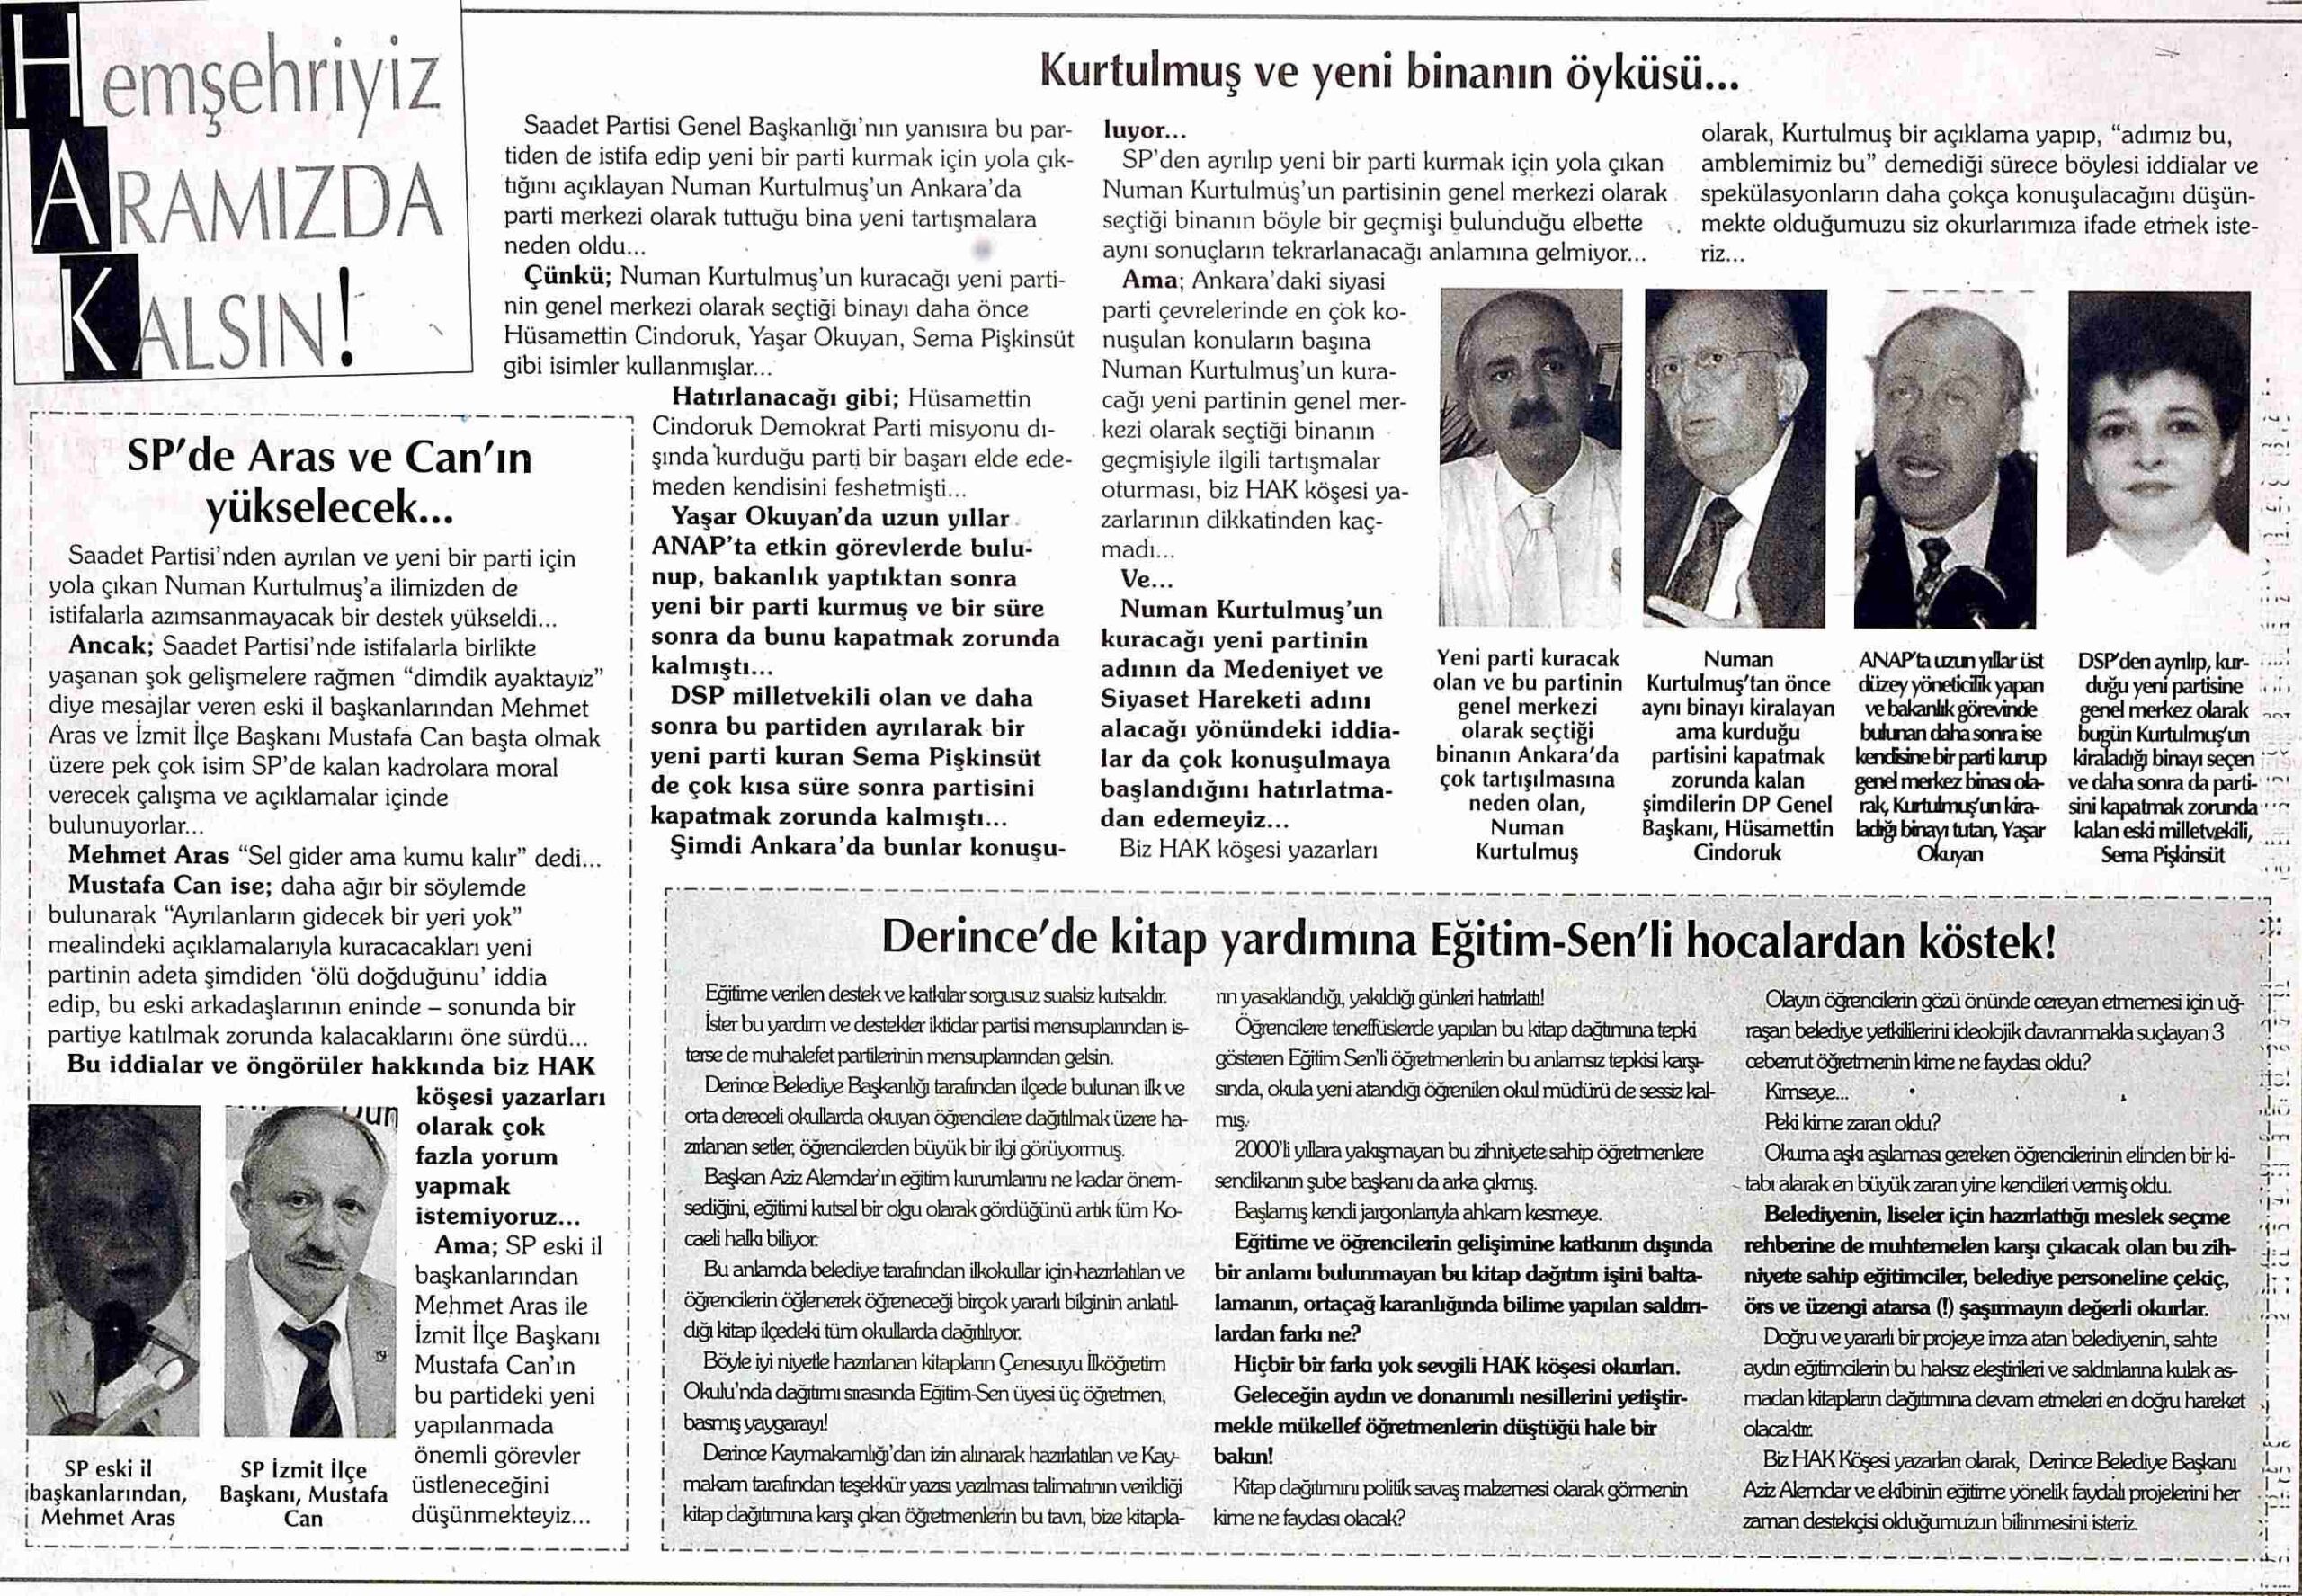 Hemşehriyiz
ARAMIZDA
KALSIN!
Kurtulmuş ve yeni binanın öyküsü...
Saadet Partisi Genel Başkanlığı'nın yanısıra bu par-
tiden de istifa edip yeni bir parti kurmak için yola çık-
tığını açıklayan Numan Kurtulmuş'un Ankara'da
parti merkezi olarak tuttuğu bina yeni tartışmalara
neden oldu...
Çünkü; Numan Kurtulmuş'un kuracağı yeni parti-
nin genel merkezi olarak seçtiği binayı daha önce
Hüsamettin Cindoruk, Yaşar Okuyan, Sema Pişkinsüt
gibi isimler kullanmışlar...
Hatırlanacağı gibi; Hüsamettin
Cindoruk Demokrat Parti misyonu dı-
şında kurduğu parti bir başarı elde ede-
meden kendisini feshetmişti...
Yaşar Okuyan'da uzun yıllar
ANAP'ta etkin görevlerde bulu-
nup, bakanlık yaptıktan sonra
yeni bir parti kurmuş ve bir süre
sonra da bunu kapatmak zorunda
kalmıştı...
DSP milletvekili olan ve daha
sonra bu partiden ayrılarak bir
yeni parti kuran Sema Pişkinsüt
de çok kısa süre sonra partisini
kapatmak zorunda kalmıştı...
Şimdi Ankara'da bunlar konuşu-
luyor...
SP'den ayrılıp yeni bir parti kurmak için yola çıkan
Numan Kurtulmuş'un partisinin genel merkezi olarak
seçtiği binanın böyle bir geçmişi bulunduğu elbette
aynı sonuçların tekrarlanacağı anlamına gelmiyor...
Ama; Ankara'daki siyasi
parti çevrelerinde en çok ko-
nuşulan konuların başına
Numan Kurtulmuş'un kura-
cağı yeni partinin genel mer-
kezi olarak seçtiği binanın
geçmişiyle ilgili tartışmalar
oturması, biz HAK köşesi ya-
zarlarının dikkatinden kaç-
madı...
Ve...
Numan Kurtulmuş'un
kuracağı yeni partinin
adının da Medeniyet ve
Siyaset Hareketi adını
alacağı yönündeki iddia-
lar da çok konuşulmaya
başlandığını hatırlatma-
dan edemeyiz...
Biz HAK köşesi yazarları
olarak, Kurtulmuş bir açıklama yapıp, “adımız bu,
amblemimiz bu” demediği sürece böylesi iddialar ve
spekülasyonların daha çokça konuşulacağını düşün-
mekte olduğumuzu siz okurlarımıza ifade etmek iste-
riz...
Yeni parti kuracak
olan ve bu partinin
genel merkezi
olarak seçtiği
binanın Ankara'da
çok tartışılmasına
neden olan,
Numan
Kurtulmuş
Numan
Kurtulmuş'tan önce
aynı binayı kiralayan
ama kurduğu
partisini kapatmak
zorunda kalan
şimdilerin DP Genel
Başkanı, Hüsamettin
Cindoruk
ANAP'ta uzun yıllar üst
düzey yöneticilik yapan
ve bakanlık görevinde
bulunan daha sonra ise
kendisine bir parti kurup
genel merkez binası ola-
rak, Kurtulmuş'un kira-
ladığı binayı tutan, Yaşar
Okuyan
DSP'den ayrılıp, kur-
duğu yeni partisine
genel merkez olarak
bugün Kurtulmuş'un
kiraladığı binayı seçen
ve daha sonra da parti-
sini kapatmak zorunda
kalan eski milletvekili,
Sema Pişkinsüt
SP'de Aras ve Can'ın
yükselecek...
Saadet Partisi'nden ayrılan ve yeni bir parti için
yola çıkan Numan Kurtulmuş'a ilimizden de
istifalarla azımsanmayacak bir destek yükseldi...
Ancak; Saadet Partisi'nde istifalarla birlikte
yaşanan şok gelişmelere rağmen “dimdik ayaktayız”
diye mesajlar veren eski il başkanlarından Mehmet
Aras ve İzmit İlçe Başkanı Mustafa Can başta olmak
üzere pek çok isim SP'de kalan kadrolara moral
verecek çalışma ve açıklamalar içinde
bulunuyorlar...
Mehmet Aras “Sel gider ama kumu kalır” dedi...
Mustafa Can ise; daha ağır bir söylemde
bulunarak “Ayrılanların gidecek bir yeri yok”
mealindeki açıklamalarıyla kuracacakları yeni
partinin adeta şimdiden ‘ölü doğduğunu’ iddia
edip, bu eski arkadaşlarının eninde – sonunda bir
partiye katılmak zorunda kalacaklarını öne sürdü...
Bu iddialar ve öngörüler hakkında biz HAK
köşesi yazarları
olarak çok
fazla yorum
yapmak
istemiyoruz...
Ama; SP eski il
başkanlarından
Mehmet Aras ile
İzmit İlçe Başkanı
Mustafa Can'ın
bu partideki yeni
yapılanmada
önemli görevler
üstleneceğini
düşünmekteyiz...
SP eski il
başkanlarından,
Mehmet Aras
SP İzmit İlçe
Başkanı, Mustafa
Can
Derince'de kitap yardımına Eğitim-Sen'li hocalardan köstek!
Eğitime verilen destek ve katkılar sorgusuz sualsiz kutsaldır.
İster bu yardım ve destekler iktidar partisi mensuplarından is-
terse de muhalefet partilerinin mensuplarından gelsin.
Derince Belediye Başkanlığı tarafından ilçede bulunan ilk ve
orta dereceli okullarda okuyan öğrencilere dağıtılmak üzere ha-
zırlanan setler, öğrencilerden büyük bir ilgi görüyormuş.
Başkan Aziz Alemdar'ın eğitim kurumlarını ne kadar önem-
sediğini, eğitimi kutsal bir olgu olarak gördüğünü artık tüm Ko-
caeli halkı biliyor.
Bu anlamda belediye tarafından ilkokullar için hazırlatılan ve
öğrencilerin öğlenerek öğreneceği birçok yararlı bilginin anlatıl-
dığı kitap ilçedeki tüm okullarda dağıtılıyor.
Böyle iyi niyetle hazırlanan kitapların Çenesuyu İlköğretim
Okulu'nda dağıtımı sırasında Eğitim-Sen üyesi üç öğretmen,
basmış yaygarayı!
Derince Kaymakamlığı'dan izin alınarak hazırlatılan ve Kay-
makam tarafından teşekkür yazısı yazılması talimatının verildiği
kitap dağıtımına karşı çıkan öğretmenlerin bu tavrı, bize kitapla-
rın yasaklandığı, yakıldığı günleri hatırlattı!
Öğrencilere teneffüslerde yapılan bu kitap dağıtımına tepki
gösteren Eğitim Sen'li öğretmenlerin bu anlamsız tepkisi karşı-
sında, okula yeni atandığı öğrenilen okul müdürü de sessiz kal-
mış.
2000'li yıllara yakışmayan bu zihniyete sahip öğretmenlere
sendikanın şube başkanı da arka çıkmış.
Başlamış kendi jargonlarıyla ahkam kesmeye.
Eğitime ve öğrencilerin gelişimine katkının dışında
bir anlamı bulunmayan bu kitap dağıtım işini balta-
lamanın, ortaçağ karanlığında bilime yapılan saldırı-
lardan farkı ne?
Hiçbir bir farkı yok sevgili HAK köşesi okurları.
Geleceğin aydın ve donanımlı nesillerini yetiştir-
mekle mükellef öğretmenlerin düştüğü hale bir
bakın!
Kitap dağıtımını politik savaş malzemesi olarak görmenin
kime ne faydası olacak?
Olayın öğrencilerin gözü önünde cereyan etmemesi için uğ-
raşan belediye yetkililerini ideolojik davranmakla suçlayan 3
ceberrut öğretmenin kime ne faydası oldu?
Kimseye...
Peki kime zararı oldu?
Okuma aşkı aşılaması gereken öğrencilerinin elinden bir ki-
tabı alarak en büyük zararı yine kendileri vermiş oldu.
Belediyenin, liseler için hazırlattığı meslek seçme
rehberine de muhtemelen karşı çıkacak olan bu zih-
niyete sahip eğitimciler, belediye personeline çekiç,
örs ve üzengi atarsa (!) şaşırmayın değerli okurlar.
Doğru ve yararlı bir projeye imza atan belediyenin, sahte
aydın eğitimcilerin bu haksız eleştirileri ve saldırılarına kulak as-
madan kitapların dağıtımına devam etmeleri en doğru hareket
olacaktır.
Biz HAK Köşesi yazarları olarak, Derince Belediye Başkanı
Aziz Alemdar ve ekibinin eğitime yönelik faydalı projelerini her
zaman destekçisi olduğumuzun bilinmesini isteriz.